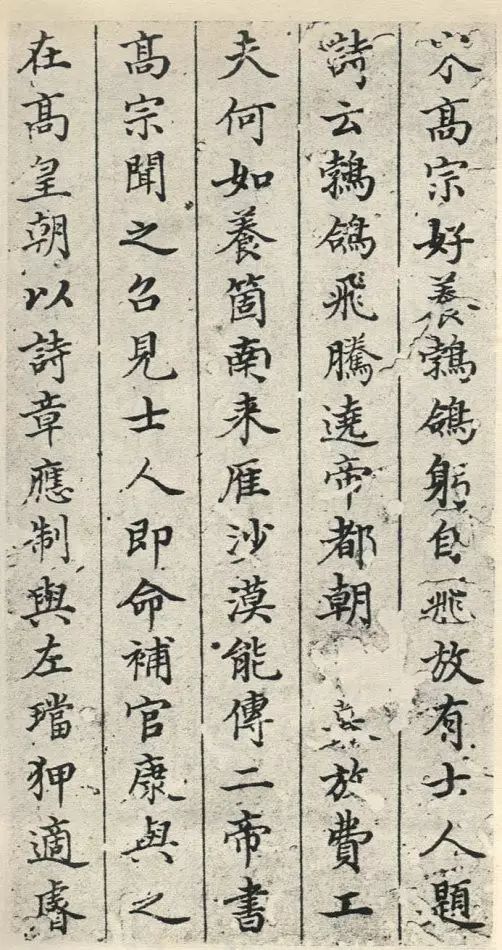 尒高宗好養鵓鴿躬自飛放有士人題
詩云鵓鴿飛騰遶帝都朝放費工
夫何如養箇南来雁沙漠能傳二帝書
高宗聞之召見士人即命補官康與之
在高皇朝以詩章應制與左璫狎適睿